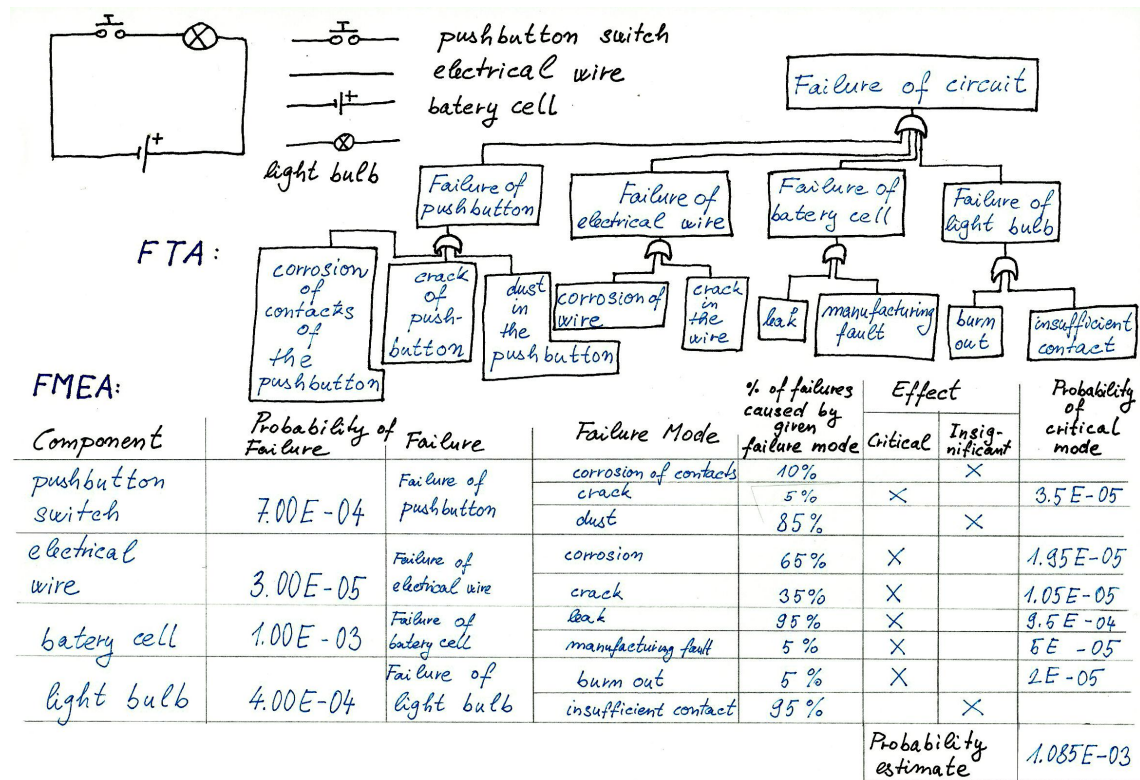 pushbutton switch
electrical wire
batery cell
light bulb
+
+
FTA:
Failure of circuit
Failure of
pushbutton
Failure of
electrical wire
Failure of
batery cell
Failure of
light bulb
corrosion
of
contacts
of
the
pushbutton
crack
of
push-
button
dust
in
the
pushbutton
corrosion of
wire
crack
in
the
wire
leak
manufacturing
fault
burn
out
insufficient
contact
FMEA:
Component
Probability of
Failure
Failure
Failure Mode
% of failures
caused by
given
failure mode
Effect
Critical
Insig-
nificant
Probability
of
critical
mode
pushbutton
switch
7.00E-04
Failure of
pushbutton
corrosion of contacts 10% X
crack 5% X 3.5E-05
dust 85% X
electrical
wire
3.00E-05
Failure of
electrical wire
corrosion 65% X 1.95E-05
crack 35% X 1.05E-05
batery cell
1.00E-03
Failure of
batery cell
leak 95% X 9.5E-04
manufacturing fault 5% X 5E-05
light bulb
4.00E-04
Failure of
light bulb
burn out 5% X 2E-05
insufficient contact 95% X
Probability
estimate
1.085E-03